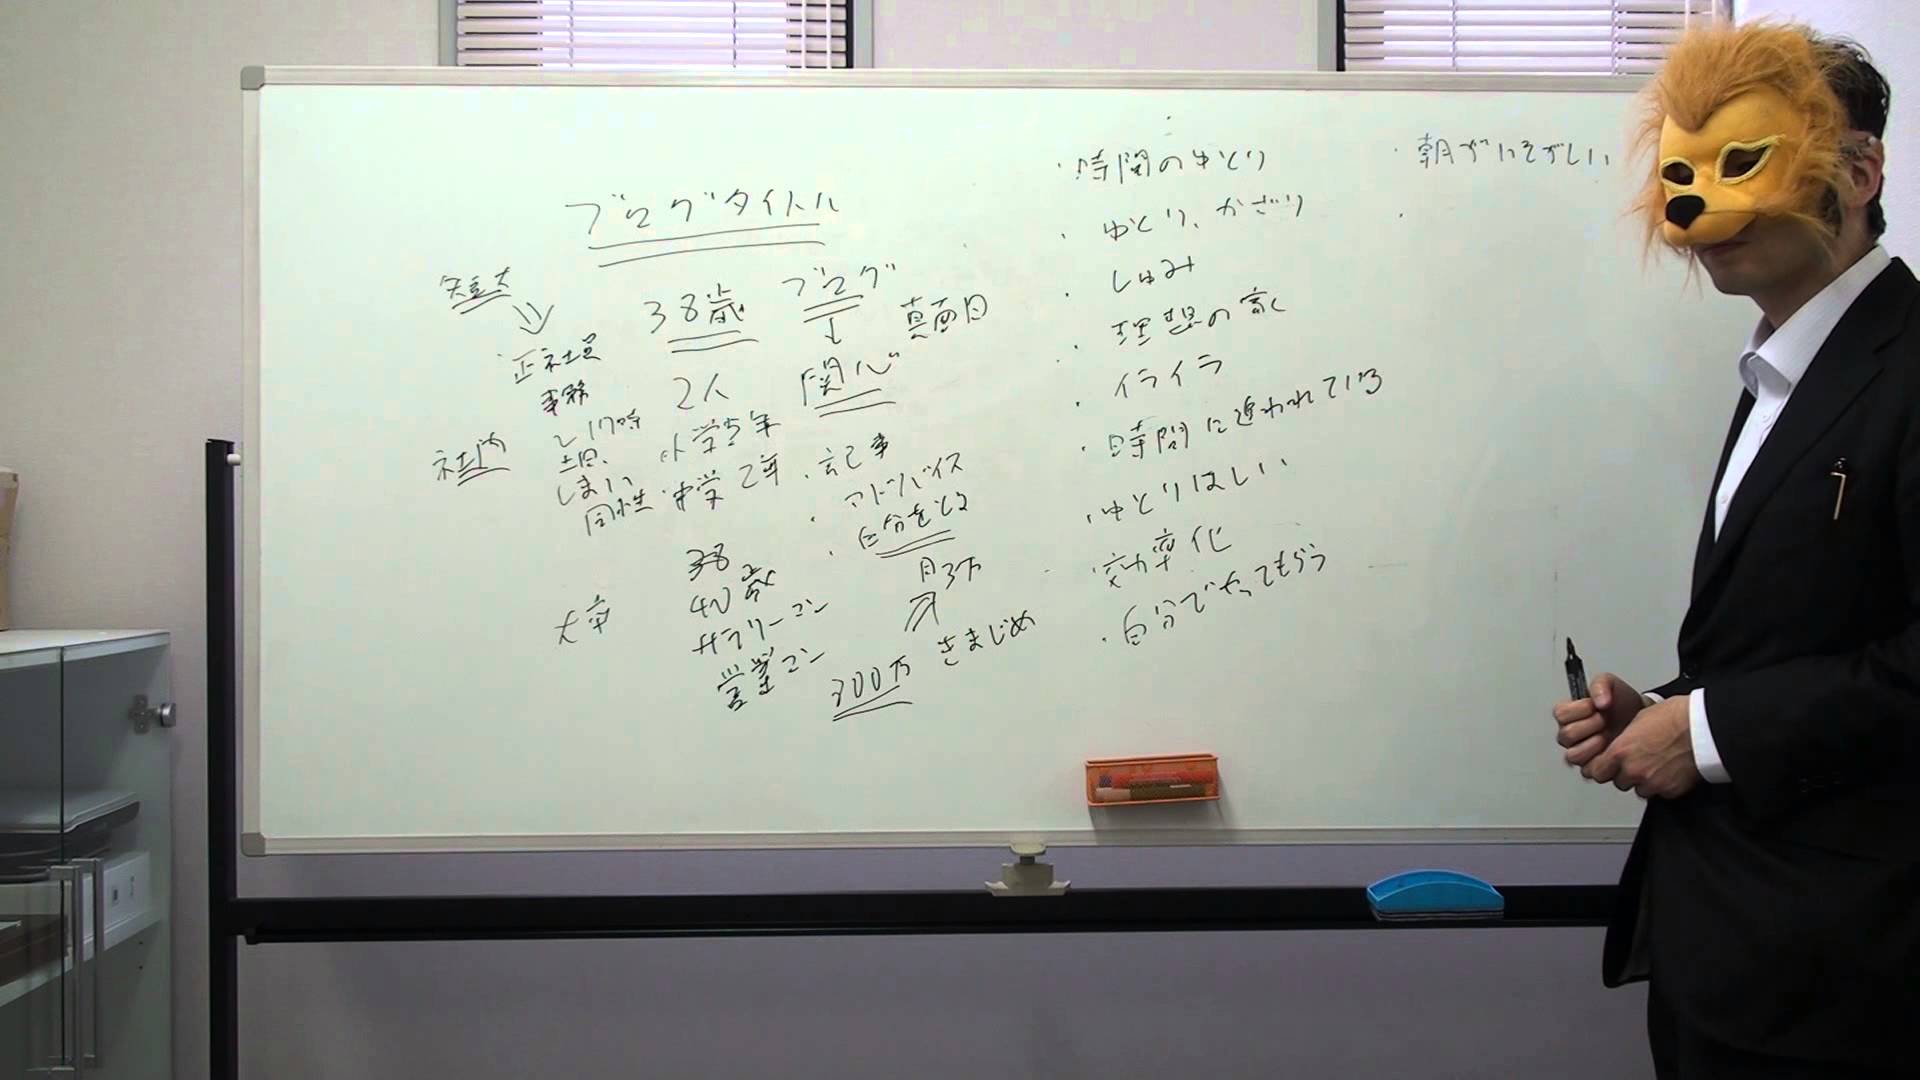 ブログタイトル
短大
38歳
ブログ
真面目
正社員
事務
2人
関心
社内
〜17時
土日、
小学5年
中学2年
・記事
・アドバイス
38
40歳
サラリーマン
営業マン
大卒
月3万
300万
きまじめ
・時間のゆとり
・ゆとり、かざり
・しゅみ
・理想の家
・イライラ
・時間に追われている
・ゆとりほしい
・効率化
・自分でやってもらう
・朝がいそがしい